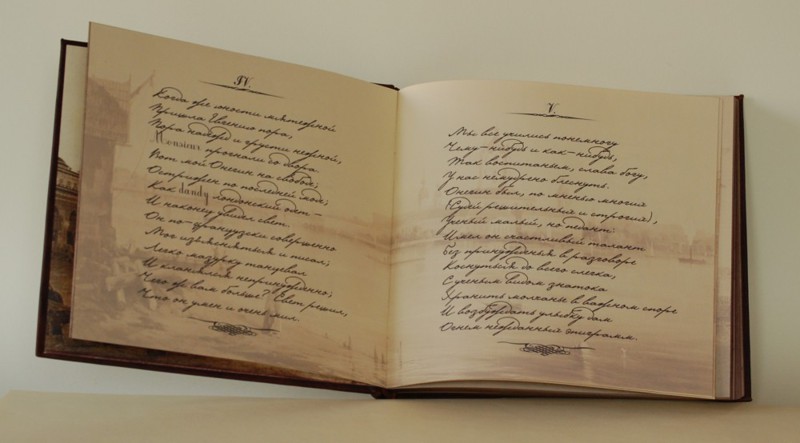 IV.
Когда же юности мятежной
Пришла Евгению пора,
Пора надежд и грусти нежной,
Monsieur прогнали со двора.
Вот мой Онегин на свободе;
Острижен по последней моде;
Как dandy лондонский одет –
И наконец увидел свет.
Он по-французски совершенно
Мог изъясняться и писал;
Легко мазурку танцевал
И кланялся непринужденно;
Чего ж вам больше? Свет решил,
Что он умен и очень мил.
V.
Мы все учились понемногу
Чему-нибудь и как-нибудь,
Так воспитаньем, слава богу,
У нас немудрено блеснуть.
Онегин был, по мненью многих
(Судей решительных и строгих),
Ученый малый, но педант:
Имел он счастливый талант
Без принужденья в разговоре
Коснуться до всего слегка,
С ученым видом знатока
Хранить молчанье в важном споре
И возбуждать улыбку дам
Огнем нежданных эпиграмм.